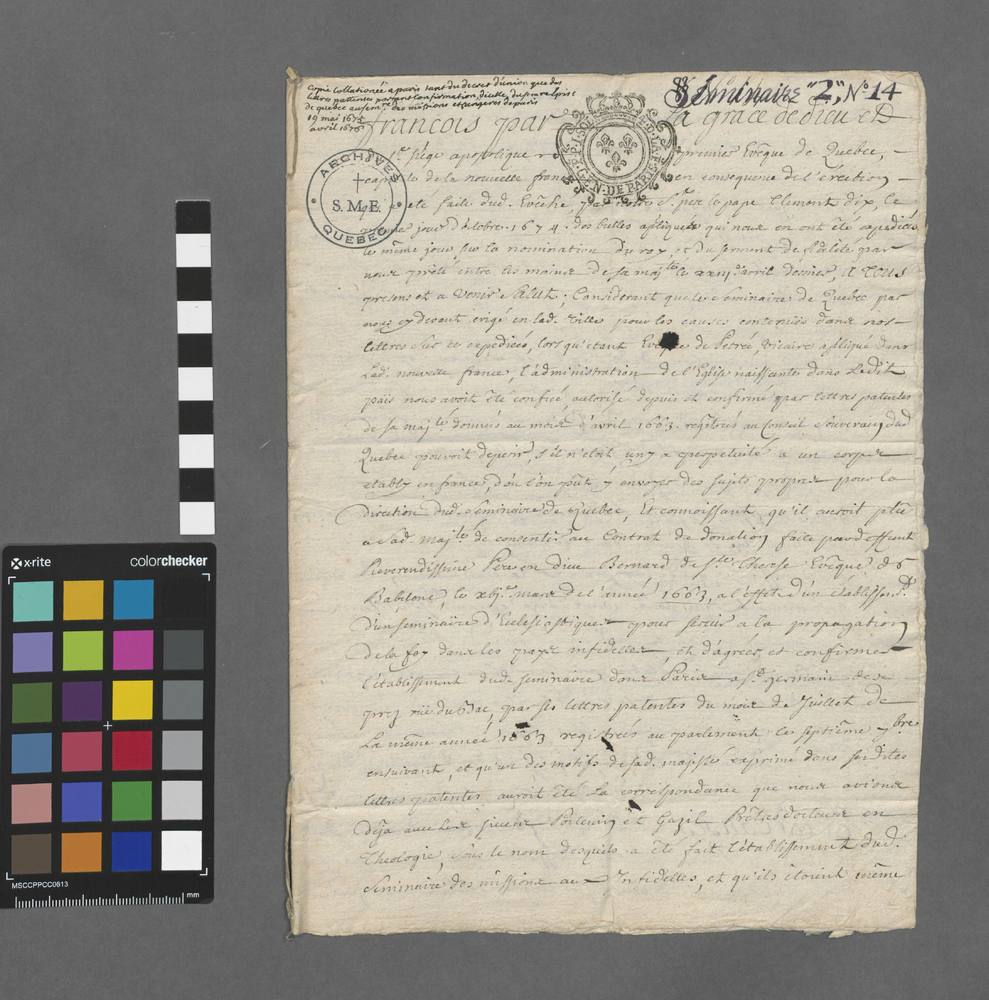 Copie Collationée a paris tant du decret d'union que des
lettres pattentes portant Confirmation d'icelle, du semre
de quebec au semre des missions etrangeres de paris
19 mai 1675
avril 1676
Séminaire "2", N° 14
francois par la grace de dieu et D
St siége apostolique premier Evêque de Quebec,
capitale de la nouvelle france en consequence de l'erection
eté faite dud. Evêché, par le pape Clement dix, le
jour d'octobre 1674. des bulles apliques qui nous en ont été expediées
le même jour sur la nomination du roy, et du serment de fidelité par
nous prêté entre les mains de sa majté le avril dernier, A TOUS
presens et a venir Salut; Considerant que le Seminaire de Quebec par
nous cy devant erigé en lad. ville pour les causes contenües dans nos
lettres sur ce expediées, lorsqu'etant Eveque de Petrée, vicaire aplique dans
lad. nouvelle france, l'administration de l'Eglise naissante dans ledit
païs nous avoit été confiée, autorisé depuis et confirmé par lettres patentes
de sa majté données au mois d'avril 1663. regitrées au Conseil Souverain dud
Quebec pouvoit deperir, s'il n'etoit uny a perpetuité a un corps
etably en france, d'où l'on pût y envoyer des sujets propres pour la
direction dud. Seminaire de Quebec, Et connoissant qu'il auroit plû
a Sad. Majté de consentir au Contrat de donation faite par deffunt
Reverendissime Pere en dieu Bernard de Ste Therese Evêque de
Babilone, le mars de l'année 1663, a l'effet d'un établissemt
d'un seminaire d'Eclesiastiques pour servir a la propagation
de la foy dans les pays infidelles, et d'agréer et confirmer
l'établissement dud. seminaire dans Paris a St germain des
prez rüe du Bac, par ses lettres patentes du mois de Juillet de
La même année 1663 registrées au parlement le septiême 7bre
ensuivant, et qu'un des motifs de sad. majesté exprimé dans sesdites
lettres patentes auroit été La correspondance que nous avions
déja avec les sieurs Poitevin et Gazil Prêtres docteurs en
Theologie, sous le nom desquels a été fait l'établissement dud.
Seminaire des missions aux Infidelles, et qu'ils étoient même
ARCHIVES
S.M.E.
QUEBEC
GEN. DE PARIS
x-rite
colorchecker
MSCCPPCC0613
mm